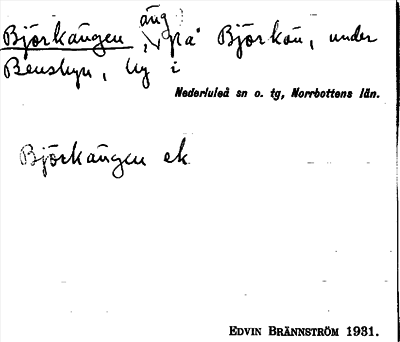 Björkängen, äng på Björkön, under
Benskyn, by i
Nederluleå sn o. tg, Norrbottens län.
Björkängen ek
EDVIN BRÄNNSTRÖM 1931.